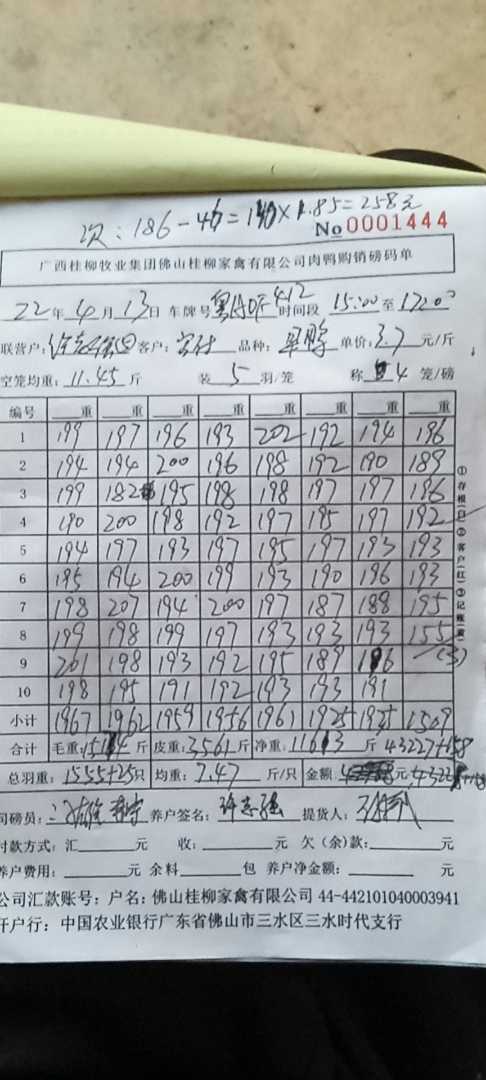 次：186-46=140×1.85=258元
No 0001444
广西桂柳牧业集团佛山桂柳家禽有限公司肉鸭购销磅码单
22年4月13日 车牌号 4412 时间段 15:00至17:20
联营户： 客户： 品种： 单价：3.7元/斤
空笼均重：11.45斤 装5羽/笼 称4笼/磅
编号 重 重 重 重 重 重 重 重
1 199 197 196 193 202 192 194 196
2 194 194 200 196 198 192 190 189
3 199 182 195 198 198 197 197 196
4 190 200 198 192 197 195 197 192
5 194 197 193 197 195 197 193 193
6 195 194 200 199 193 190 196 193
7 198 207 194 200 197 187 188 195
8 199 198 199 197 193 193 193 155
9 201 198 193 192 195 189 186 (3)
10 198 195 191 192 193 193 191
小计 1967 1962 1959 1956 1961 1925 1925 1509
合计 毛重：15174斤 皮重：3561斤 净重：11613斤 43227+158
总羽重：1555+25只 均重：7.47斤/只 金额： 元
司磅员： 养户签名： 提货人：
付款方式：汇 元 收： 元 欠（余）款： 元
养户费用： 元 余料 包 养户净金额： 元
公司汇款账号：户名：佛山桂柳家禽有限公司 44-442101040003941
开户行：中国农业银行广东省佛山市三水区三水时代支行
①存根(白)②客户(红)③记账(黄)